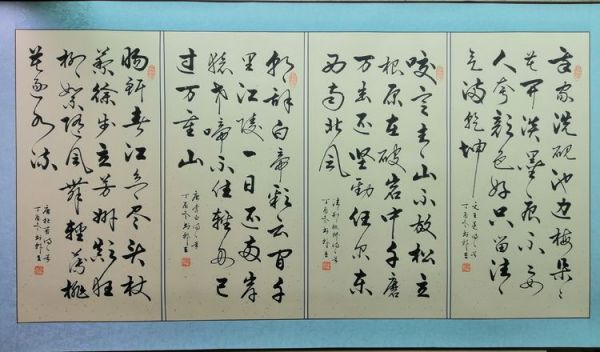 吾家洗砚池边梅朵朵
花开淡墨痕不要
人夸颜色好只留清
气满乾坤
元王冕诗
丁酉冬
咬定青山不放松立
根原在破岩中千磨
万击还坚劲任尔东
西南北风
清郑板桥诗
丁酉冬
朝辞白帝彩云间千
里江陵一日还两岸
猿声啼不住轻舟已
过万重山
唐李白诗
丁酉冬
肠断春江欲尽头杖
藜徐步立芳洲颠狂
柳絮随风舞轻薄桃
花逐水流
唐杜甫诗
丁酉冬